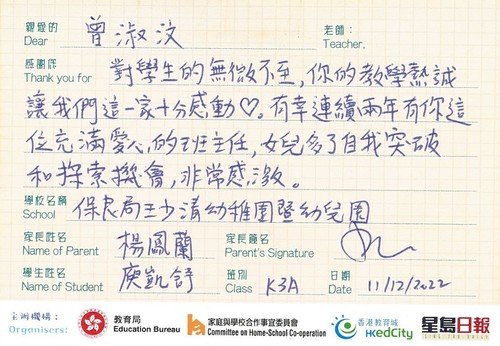 親愛的 曾淑汶 老師:
Dear Teacher,
感謝您 對學生的無微不至,你的教學熱誠
Thank you for
讓我們這一家十分感動♡。有幸連續兩年有你這
位充滿愛心的班主任,女兒多了自我突破
和探索機會,非常感激。
學校名稱 保良局王少清幼稚園暨幼兒園
School
家長姓名 楊鳳蘭 家長簽名
Name of Parent Parent's Signature
學生姓名 庾凱舒 班別 K3A 日期 11/12/2022
Name of Student Class Date
主辦機構: 教育局 家庭與學校合作事宜委員會 香港教育城 星島日報
Organisers: Education Bureau Committee on Home-School Co-operation HKedCity SING TAO DAILY